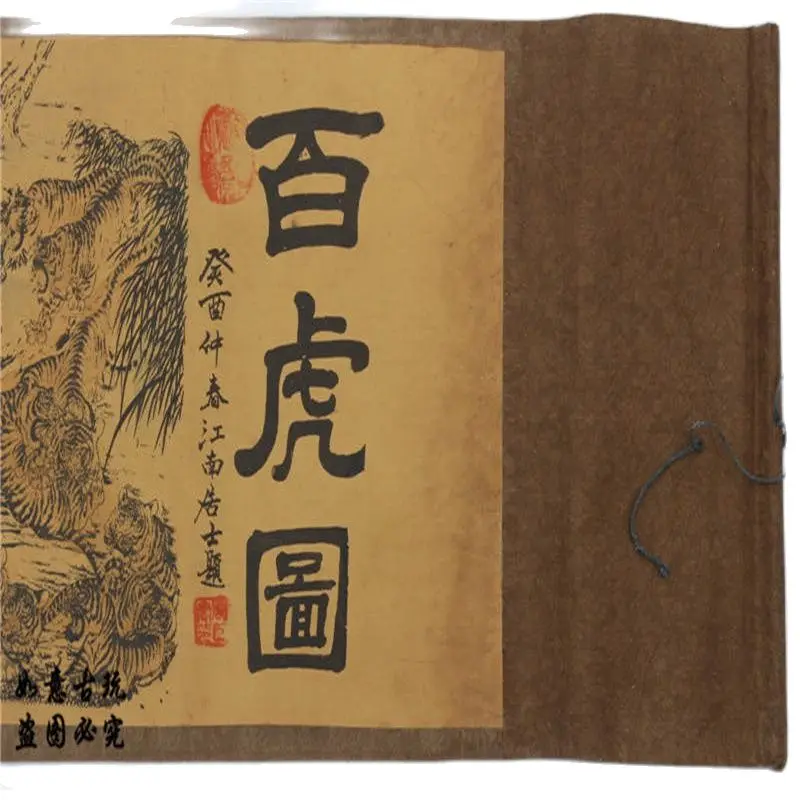 百虎圖
癸酉仲春江南居士題
如意古玩
盗图必究